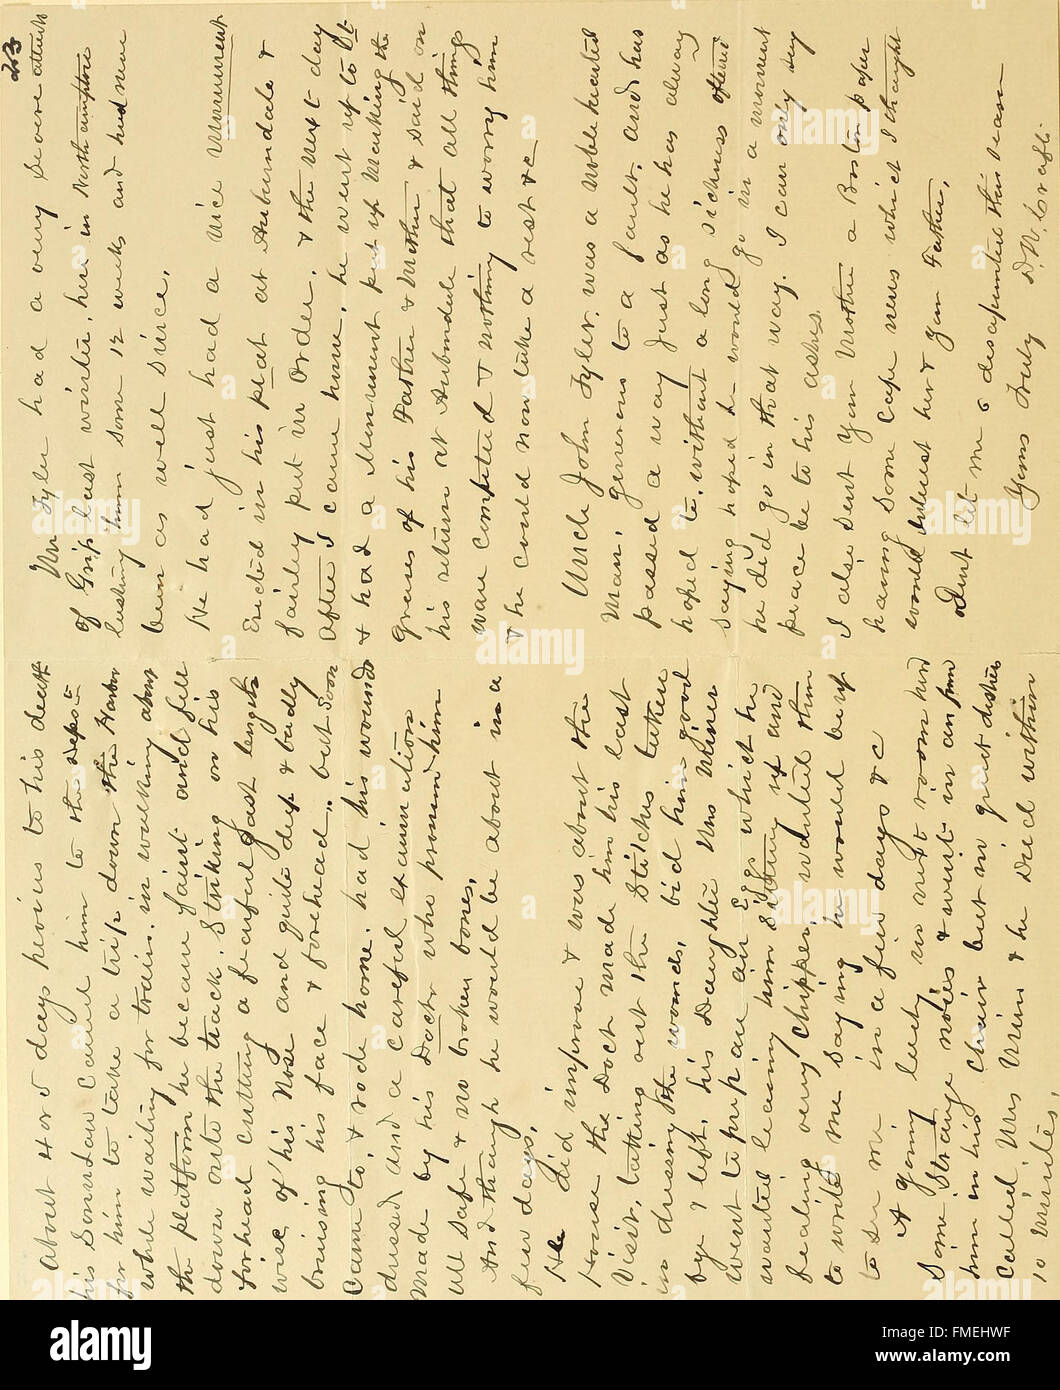 About 4 or 5 days previous to his death
his Son in Law called him to the depo to
for him to take a trip down the Harbor
while waiting for train. in walking along
the platform he became faint and fell
down onto the track. Striking on his
forhead cutting a fearful gash length
wise of his Nose and quite deep & badly
bruising his face & forehead. but soon
came to, & rode home. had his wounds
dressed and a careful examination
made by his Doctr who pronounced him
all safe & no broken bones,
And though he would be about in a
few days,
He did improve & was about the
House the Doct made him his last
visit, taking out the Stitches taken
in dressing the wounds, bid him good
bye & left, his Daughter Mrs
went to prepare an Egg which he
wanted leaving him sitting up and
feeling very chipper, wanted them
to write me saying he would be up
to see me in a few days &c
A going lady in next room heard
Some Strange noises & went in and found
him in his chair but in great distress
Called Mrs & he died within
10 minutes,
23
Mr Tyler had a very severe attack
of Grip last winter, here in Northampton
lasting him some 12 weeks and had never
been as well since,
He had just had a nice Monument
Erected in his plat at Auburndale &
fairley put in order, & the next day
after I came home, he went up to
& had a Monument put up Marking the
Graves of his Father & Mother & said on
his return at Auburndale that all things
ware completed & nothing to worry him
& he could now take a rest &c
Uncle John Tyler. was a noble hearted
Man, generous to a fault. and has
passed a way just as he has alway
hoped to, without a long sickness often
saying hoped he would go in a moment
he did go in that way. I can only say
peace be to his ashes,
I also sent your Mother a Boston paper
having some Cape news which I thought
would interest her & your Father,
dont let me disapointed this season
Yours Truly D. N. Crafts.
alamy
alamy
Image ID: FMEHWF
www.alamy.com